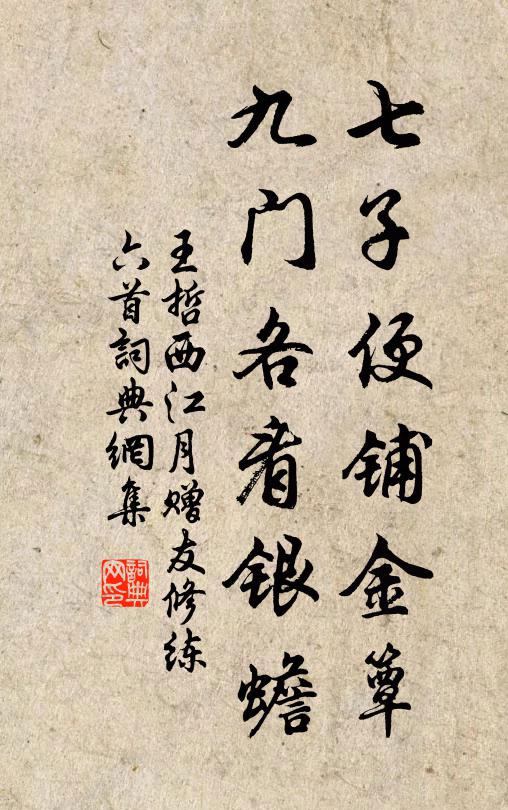 七子便铺金簟
九门各看银蟾
王哲西江月赠友修练
六首詞典網集
詞典网印